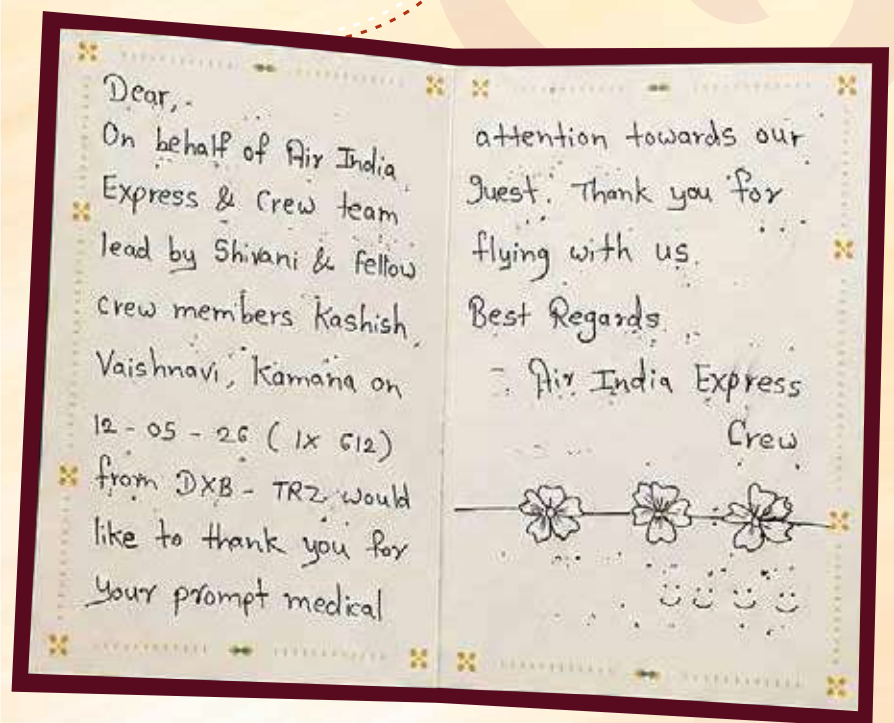 Dear,.
On behalf of Air India
Express & Crew team
lead by Shivani & fellow
crew members Kashish,
Vaishnavi, Kamana on
12-05-26 (IX 612)
from DXB - TRZ would
like to thank you for
your prompt medical
attention towards our
guest. Thank you for
flying with us.
Best Regards
Air India Express
Crew